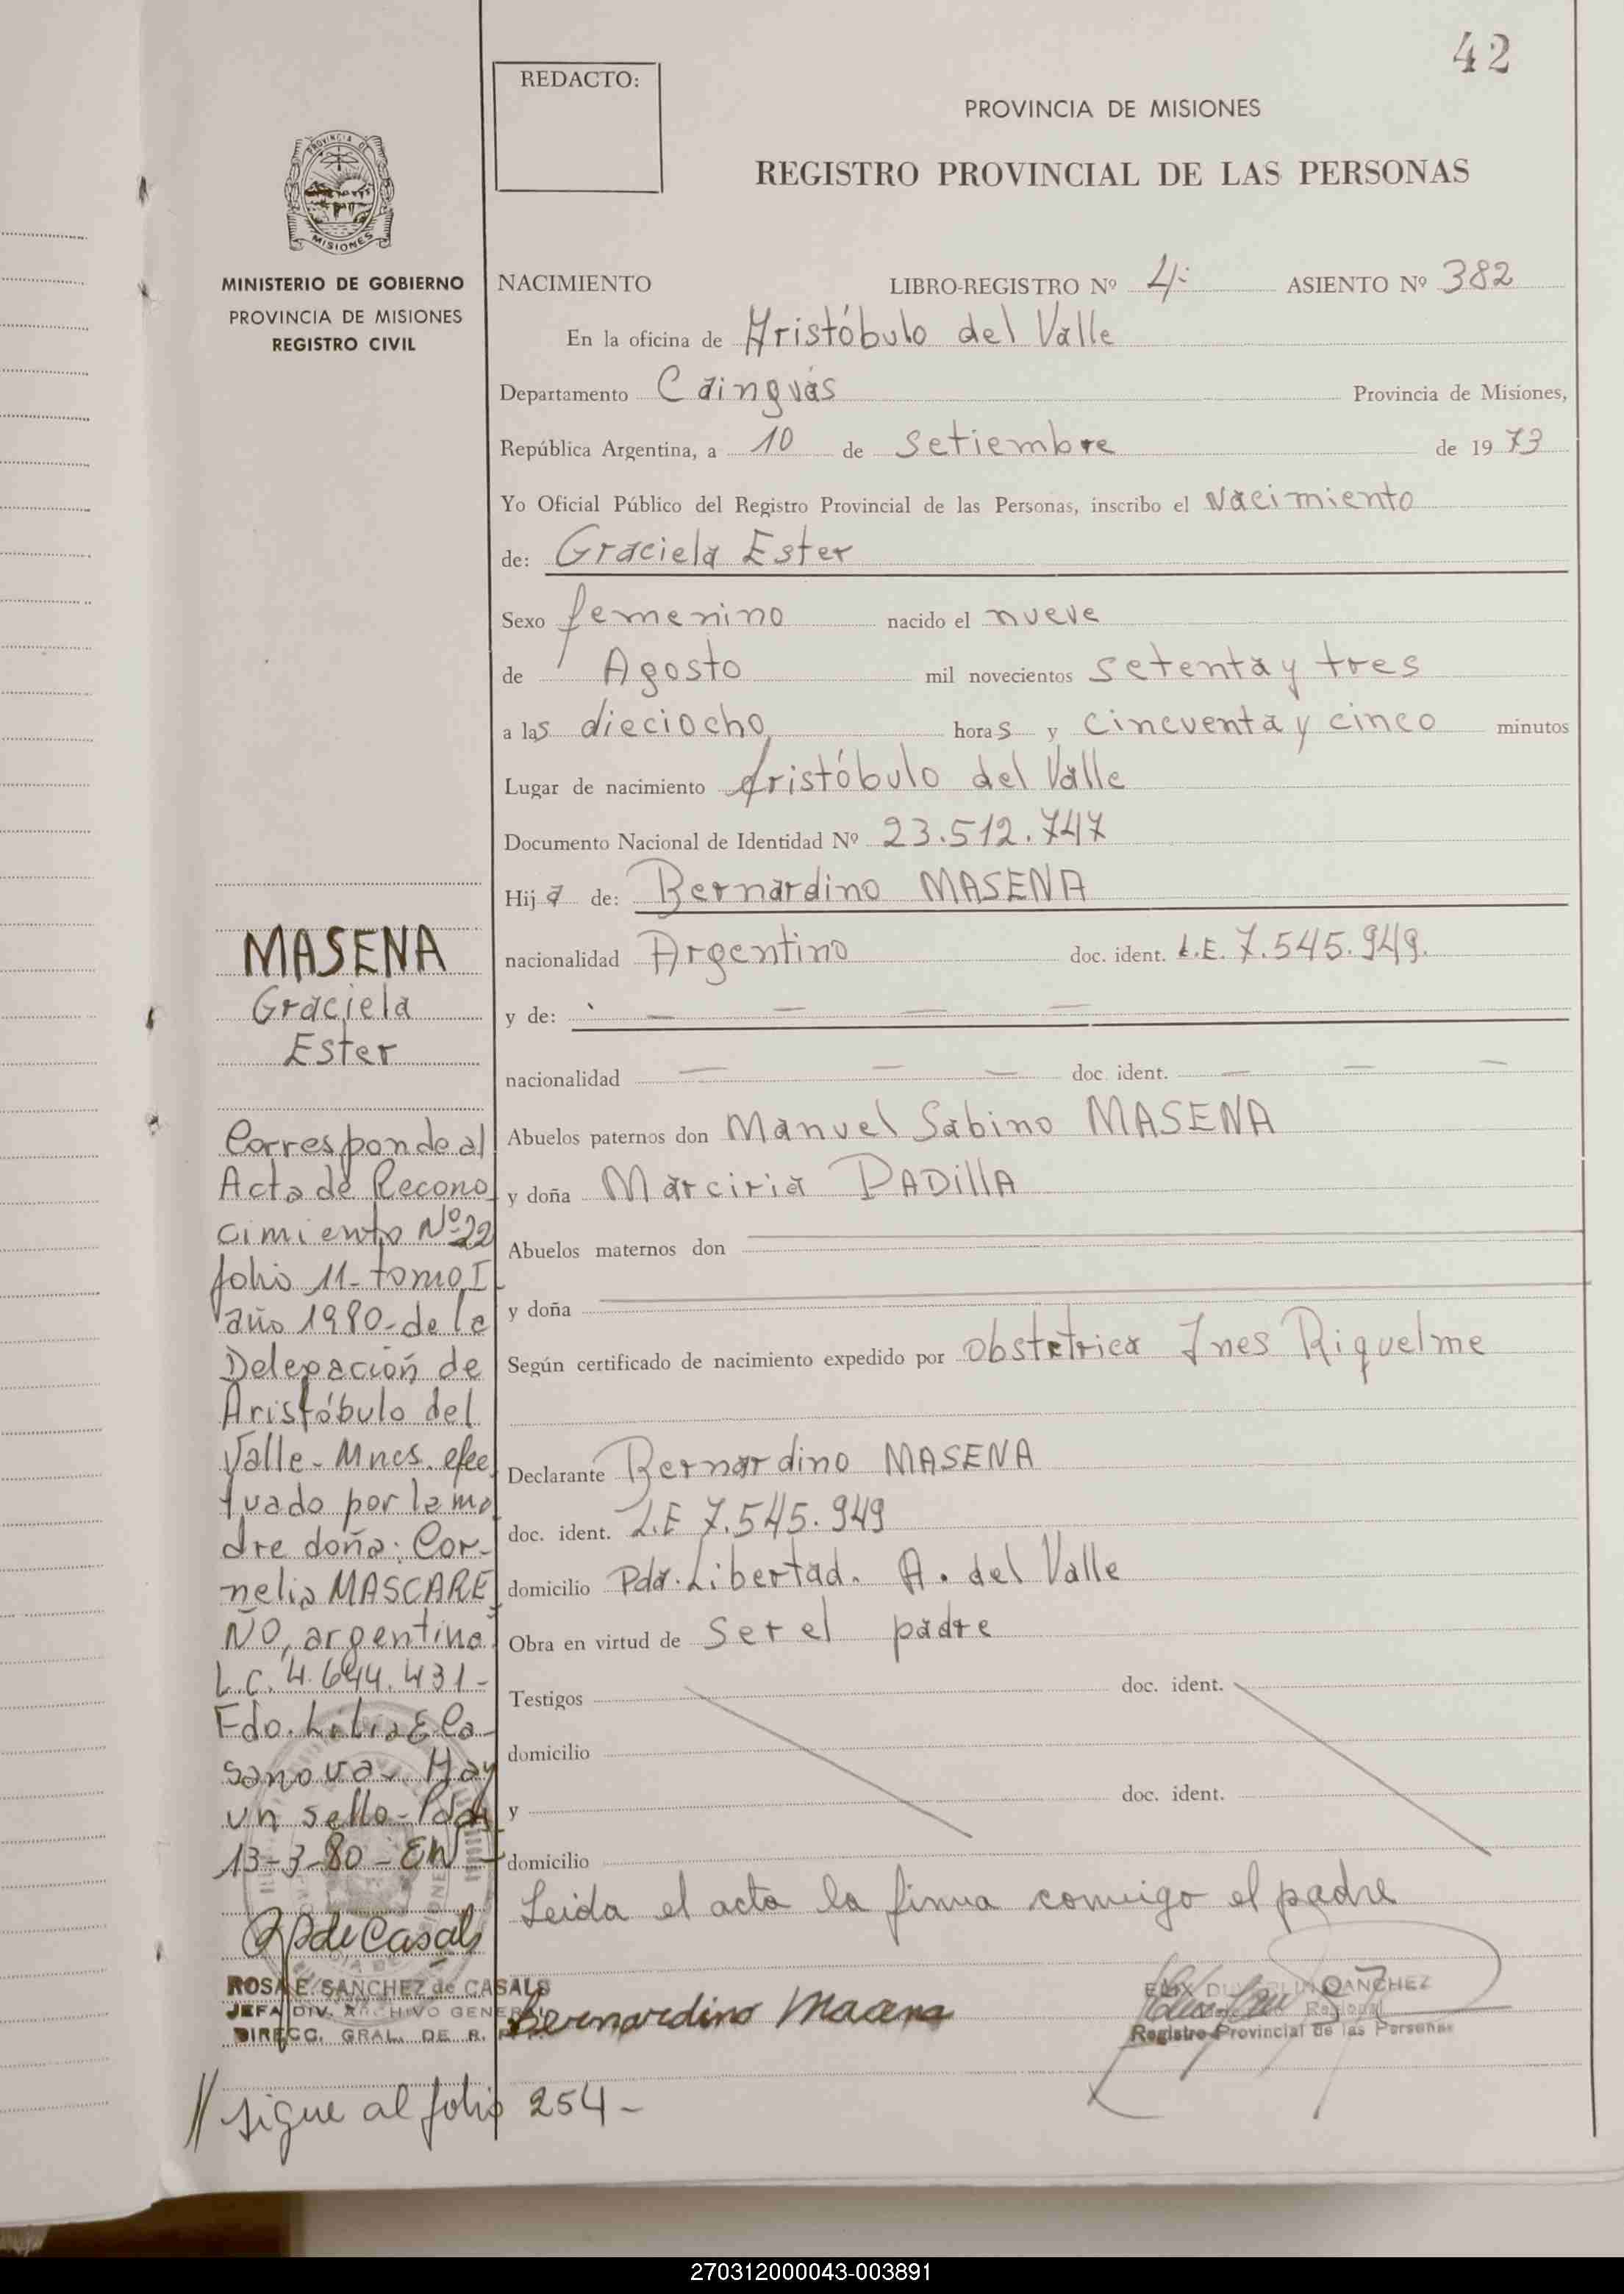 42
REDACTO:
PROVINCIA DE MISIONES
REGISTRO PROVINCIAL DE LAS PERSONAS
PROVINCIA DE
MISIONES
MINISTERIO DE GOBIERNO
PROVINCIA DE MISIONES
REGISTRO CIVIL
NACIMIENTO LIBRO-REGISTRO Nº 4: ASIENTO Nº 382
En la oficina de Aristóbulo del Valle
Departamento Cainguás Provincia de Misiones,
República Argentina, a 10 de setiembre de 1973
Yo Oficial Público del Registro Provincial de las Personas, inscribo el Nacimiento
de: Graciela Ester
Sexo femenino nacido el nueve
de Agosto mil novecientos setenta y tres
a las dieciocho horas y cincuenta y cinco minutos
Lugar de nacimiento Aristóbulo del Valle
Documento Nacional de Identidad Nº 23.512.747
Hija de: Bernardino MASENA
nacionalidad Argentino doc. ident. L.E. 7.545.949.
y de: — — — —
nacionalidad — — — doc. ident. — — —
Abuelos paternos don Manuel Sabino MASENA
y doña Marciria PADillA
Abuelos maternos don
y doña
Según certificado de nacimiento expedido por obstetrica Ines Riquelme
Declarante Bernardino MASENA
doc. ident. L.E 7.545.949
domicilio Pda. Libertad. A. del Valle
Obra en virtud de ser el padre
Testigos doc. ident.
domicilio
y doc. ident.
domicilio
Leida el acta la firma conmigo el padre
Bernardino Macena
SANCHEZ
Regional
Registro Provincial de las Personas
MASENA
Graciela
Ester
Corresponde al
Acta de Recono
cimiento Nº 22
folio 11- tomo I
año 1980- de la
Delegación de
Aristóbulo del
Valle- Mnes. efec
tuado por la ma
dre doña: Cor-
nelia MASCARE
ÑO, argentina
L.C. 4.644.431-
Fdo. Lilia E. Ca-
sanova- Hay
un sello- Pdas
13-3-80- EW
RPdeCasals
ROSA E. SANCHEZ de CASALS
JEFA DIV. ARCHIVO GENERAL
DIRECC. GRAL. DE R. P.
// sigue al folio 254-
270312000043-003891